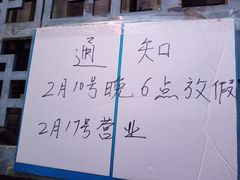 通知
2月10号晚6点放假
2月17号营业